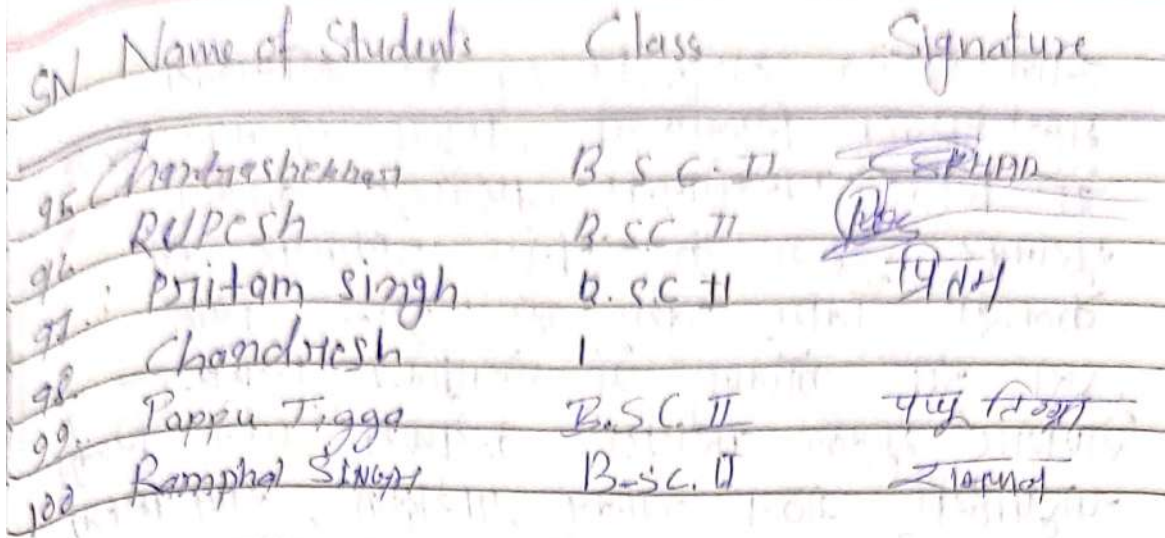 SN Name of Students Class Signature
95. Chandrashekhar B.S.C. II
96. RUPESH B.SC II
97. Pritam Singh B.S.C II प्रितम
98. Chandresh 1
99. Pappu Tigga B.S.C. II पप्पु तिग्गा
100 Ramphal SINGH B.SC. II रामफल